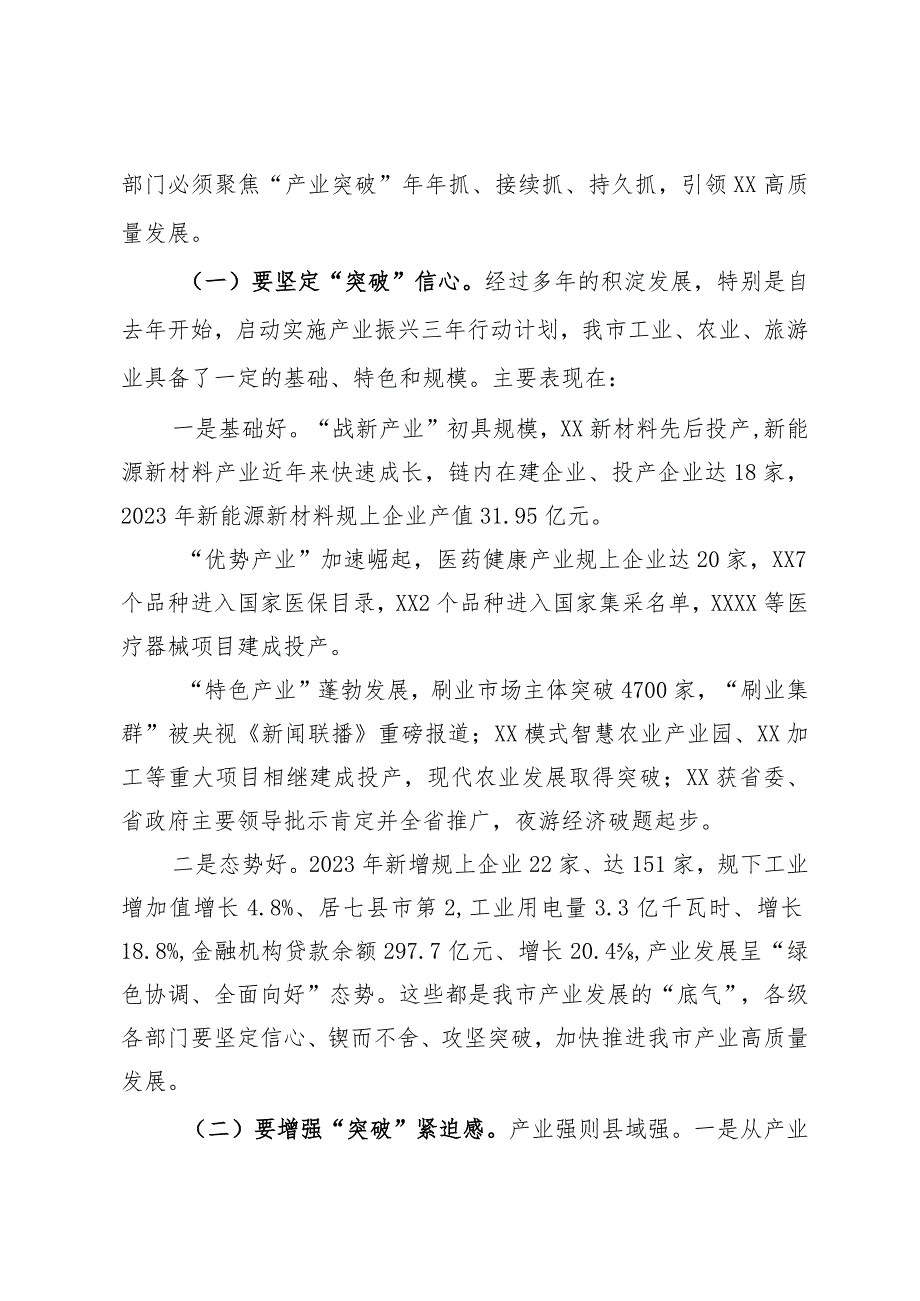 部门必须聚焦“产业突破”年年抓、接续抓、持久抓，引领XX高质
量发展。
（一）要坚定“突破”信心。经过多年的积淀发展，特别是自
去年开始，启动实施产业振兴三年行动计划，我市工业、农业、旅游
业具备了一定的基础、特色和规模。主要表现在：
一是基础好。“战新产业”初具规模，XX新材料先后投产,新能
源新材料产业近年来快速成长，链内在建企业、投产企业达18家，
2023年新能源新材料规上企业产值31.95亿元。
“优势产业”加速崛起，医药健康产业规上企业达20家，XX7
个品种进入国家医保目录，XX2个品种进入国家集采名单，XXXX等医
疗器械项目建成投产。
“特色产业”蓬勃发展，刷业市场主体突破4700家，“刷业集
群”被央视《新闻联播》重磅报道；XX模式智慧农业产业园、XX加
工等重大项目相继建成投产，现代农业发展取得突破；XX获省委、
省政府主要领导批示肯定并全省推广，夜游经济破题起步。
二是态势好。2023年新增规上企业22家、达151家，规下工业
增加值增长4.8%、居七县市第2,工业用电量3.3亿千瓦时、增长
18.8%,金融机构贷款余额297.7亿元、增长20.4⅝,产业发展呈“绿
色协调、全面向好”态势。这些都是我市产业发展的“底气”，各级
各部门要坚定信心、锲而不舍、攻坚突破，加快推进我市产业高质量
发展。
（二）要增强“突破”紧迫感。产业强则县域强。一是从产业